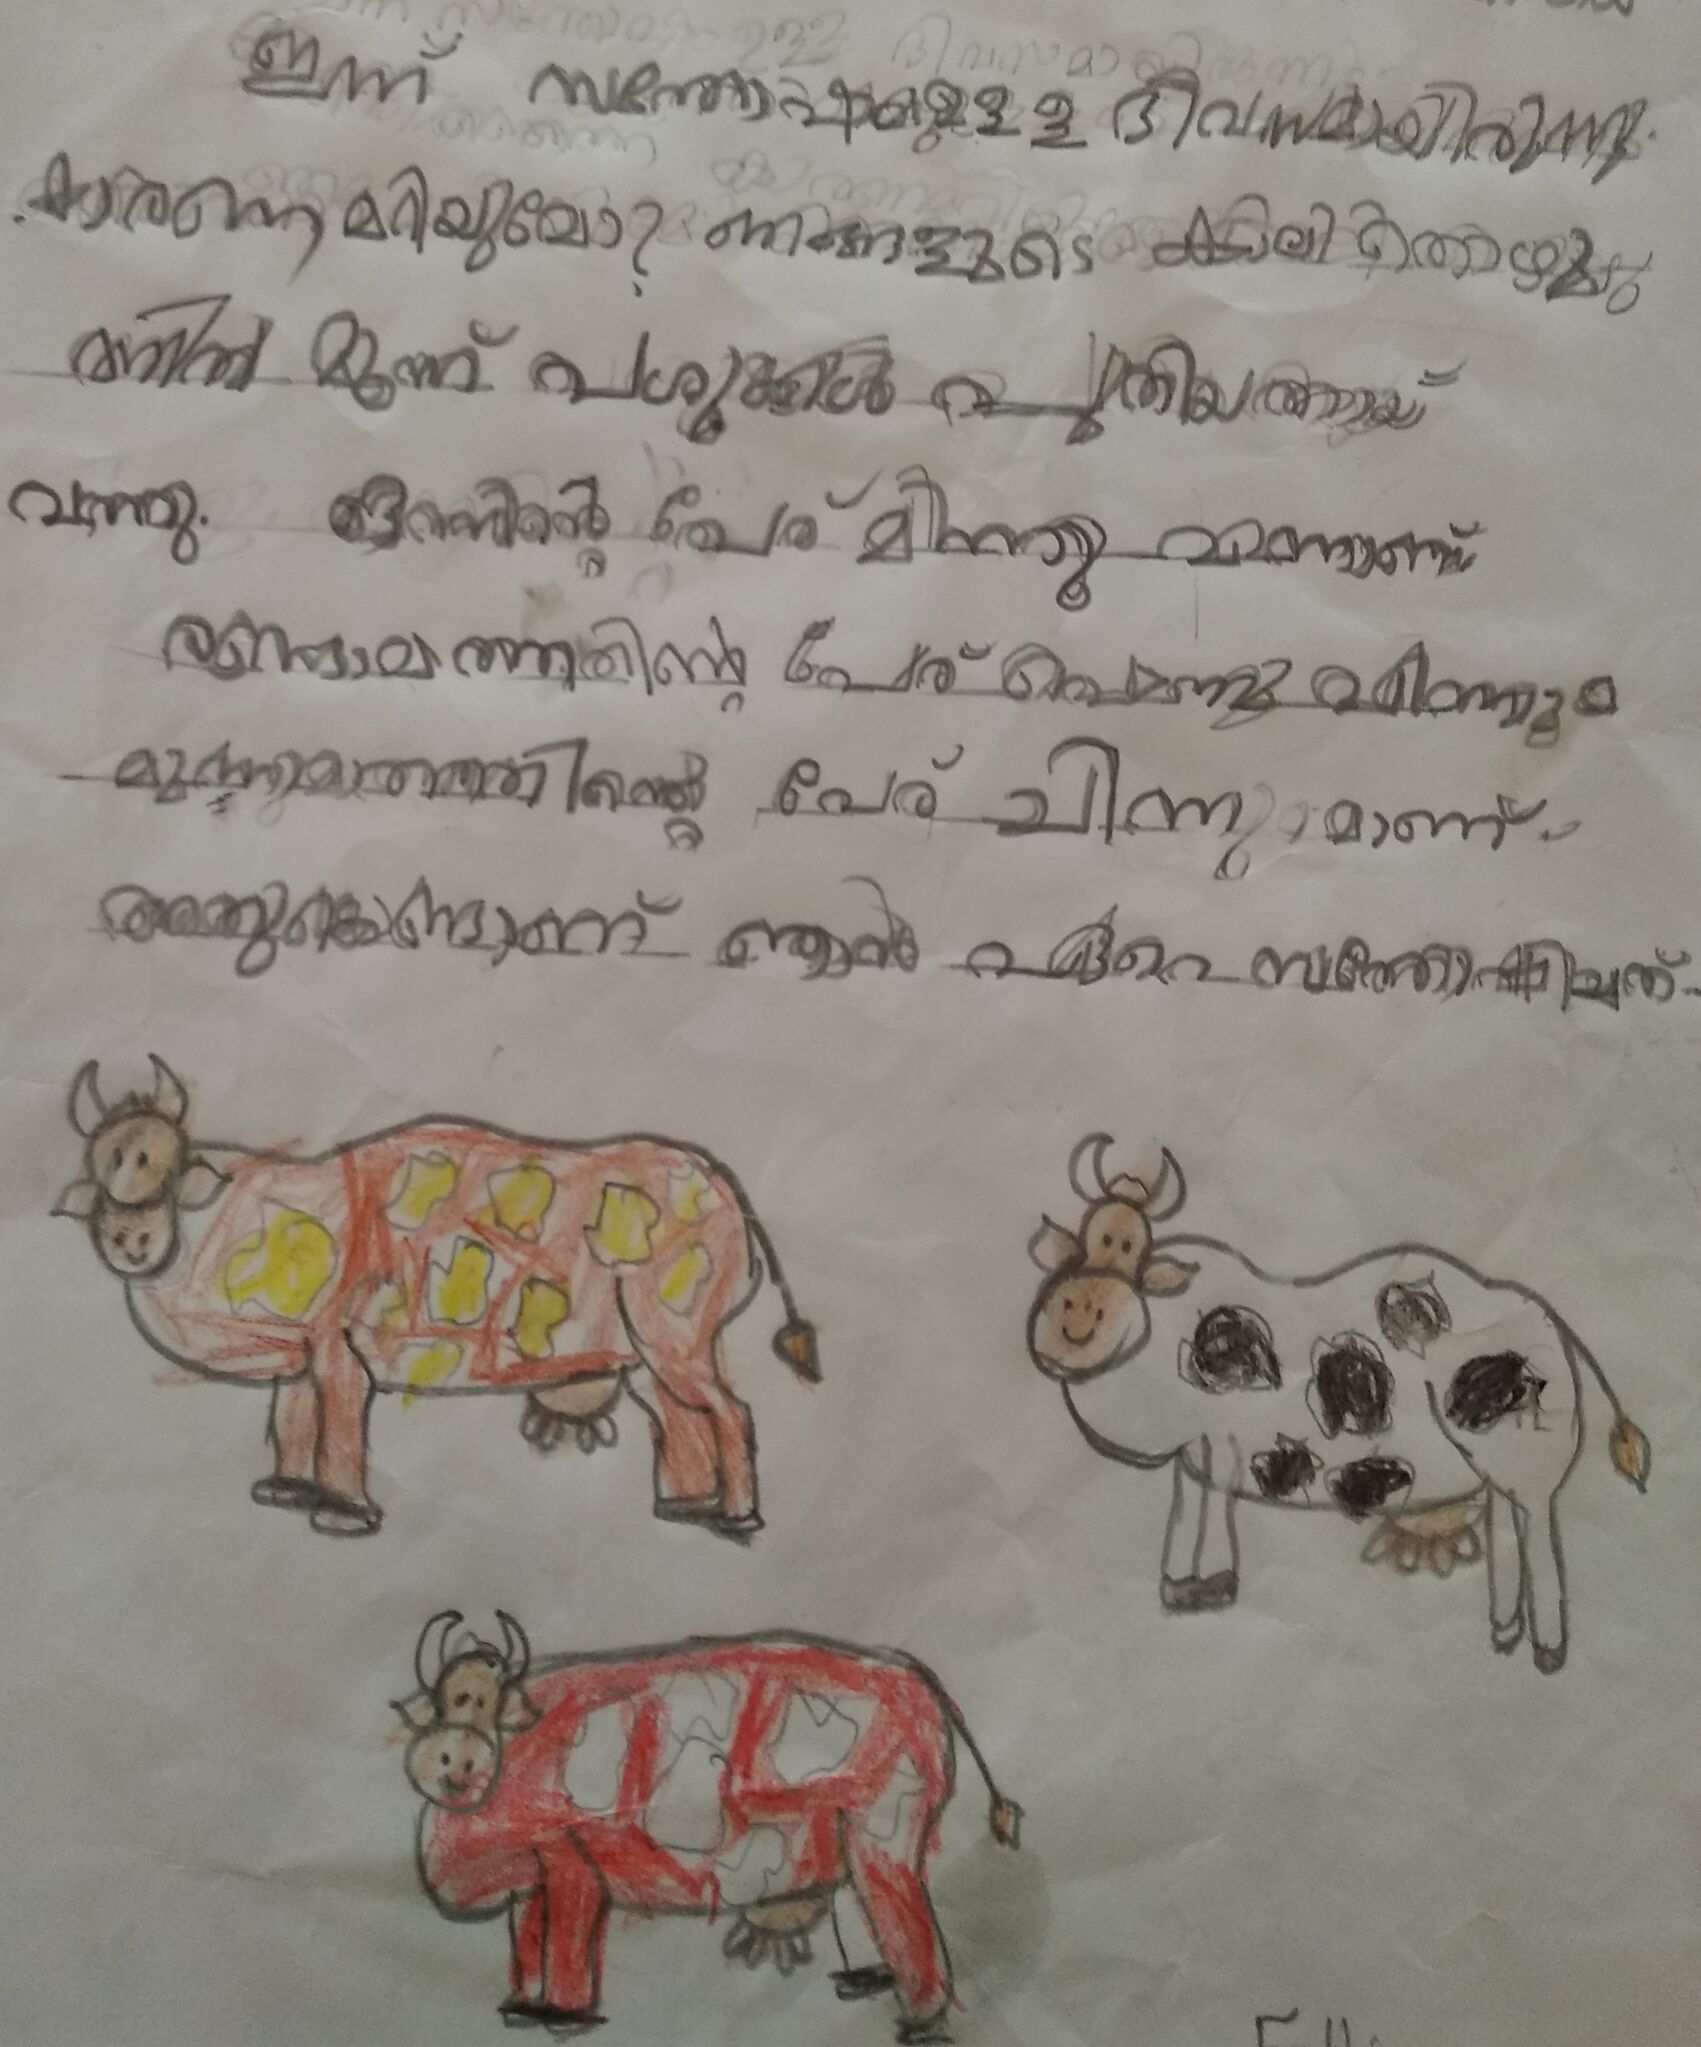 ഇന്ന് സന്തോഷമുള്ള ദിവസമായിരുന്നു.
മറിയുമോ? ഞങ്ങളുടെ കാലിതൊഴുത്തു
ത്തിൽ മൂന്ന് പശുക്കൾ പുതിയതായ്
വന്നു. ഒന്നിന്റെ പേര് മിന്നു
രണ്ടാമത്തതിന്റെ പേര്
മൂന്നാമത്തതിന്റെ പേര് ചിന്നു മാണ്.
അതുകൊണ്ടാണ് ഞാൻ വളരെ സന്തോഷിച്ചത്.